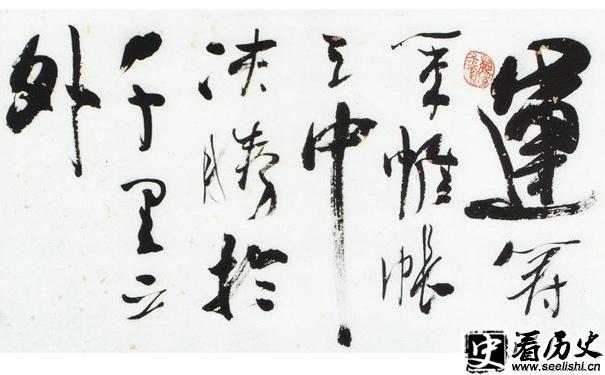 運籌
策帷帳
之中
决勝於
千里之
外
史 看历史
www.seelishi.cn